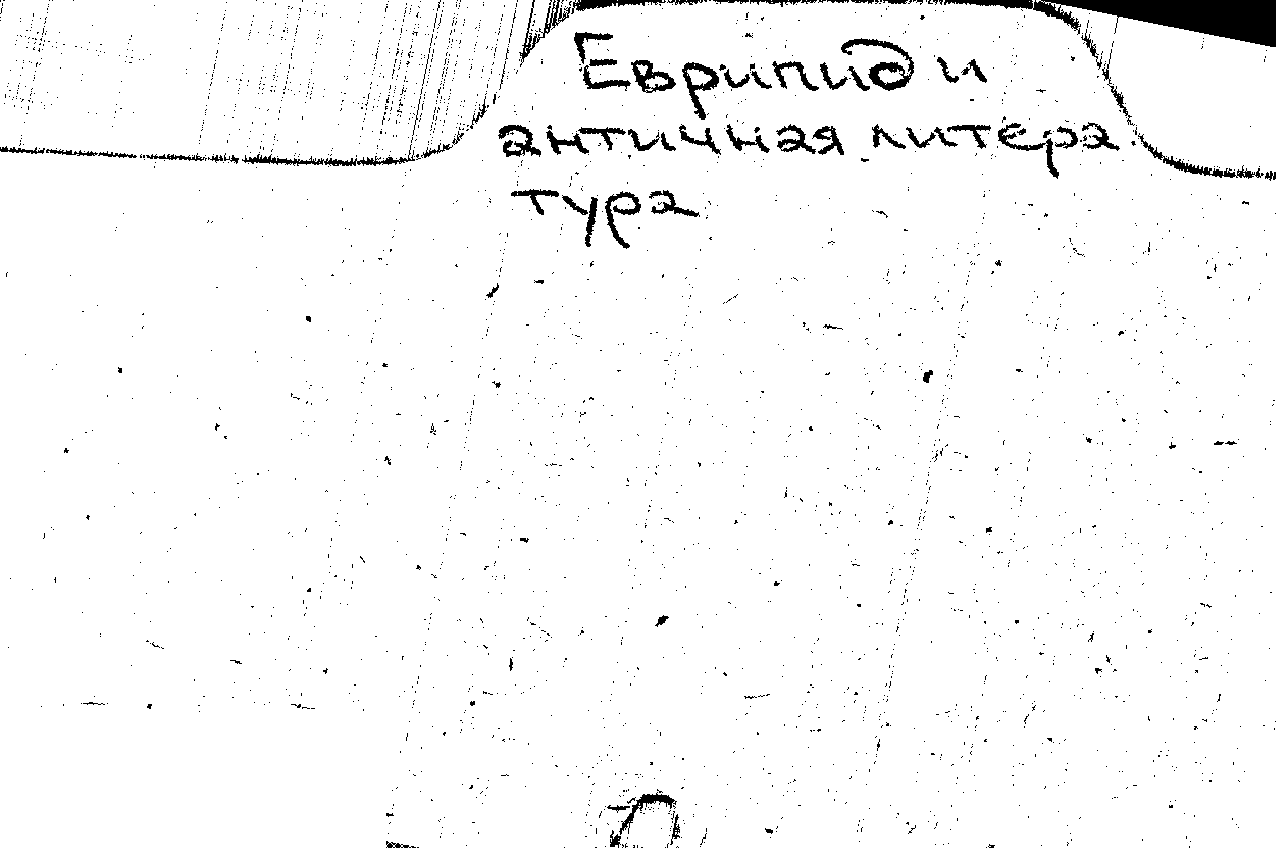 Еврипид и
античная литера
тура